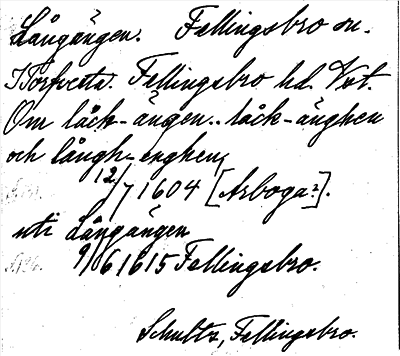 Långängen. Fellingsbro sn.
Torfvesta. Fellingsbro hd. Vstm.
Om låck-ängen.. låck-änghen
och långh-enghen,
12/7 1604 [Arboga?].
uti Långängen
9/6 1615 Fellingsbro.
Schultz, Fellingsbro.